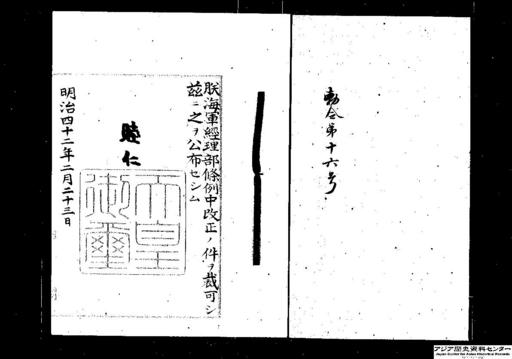 勅令第十六号
朕海軍經理部條例中改正ノ件ヲ裁可シ
茲ニ之ヲ公布セシム
睦仁
天皇
御璽
明治四十二年二月二十三日
アジア歴史資料センター
Japan Center for Asian Historical Records